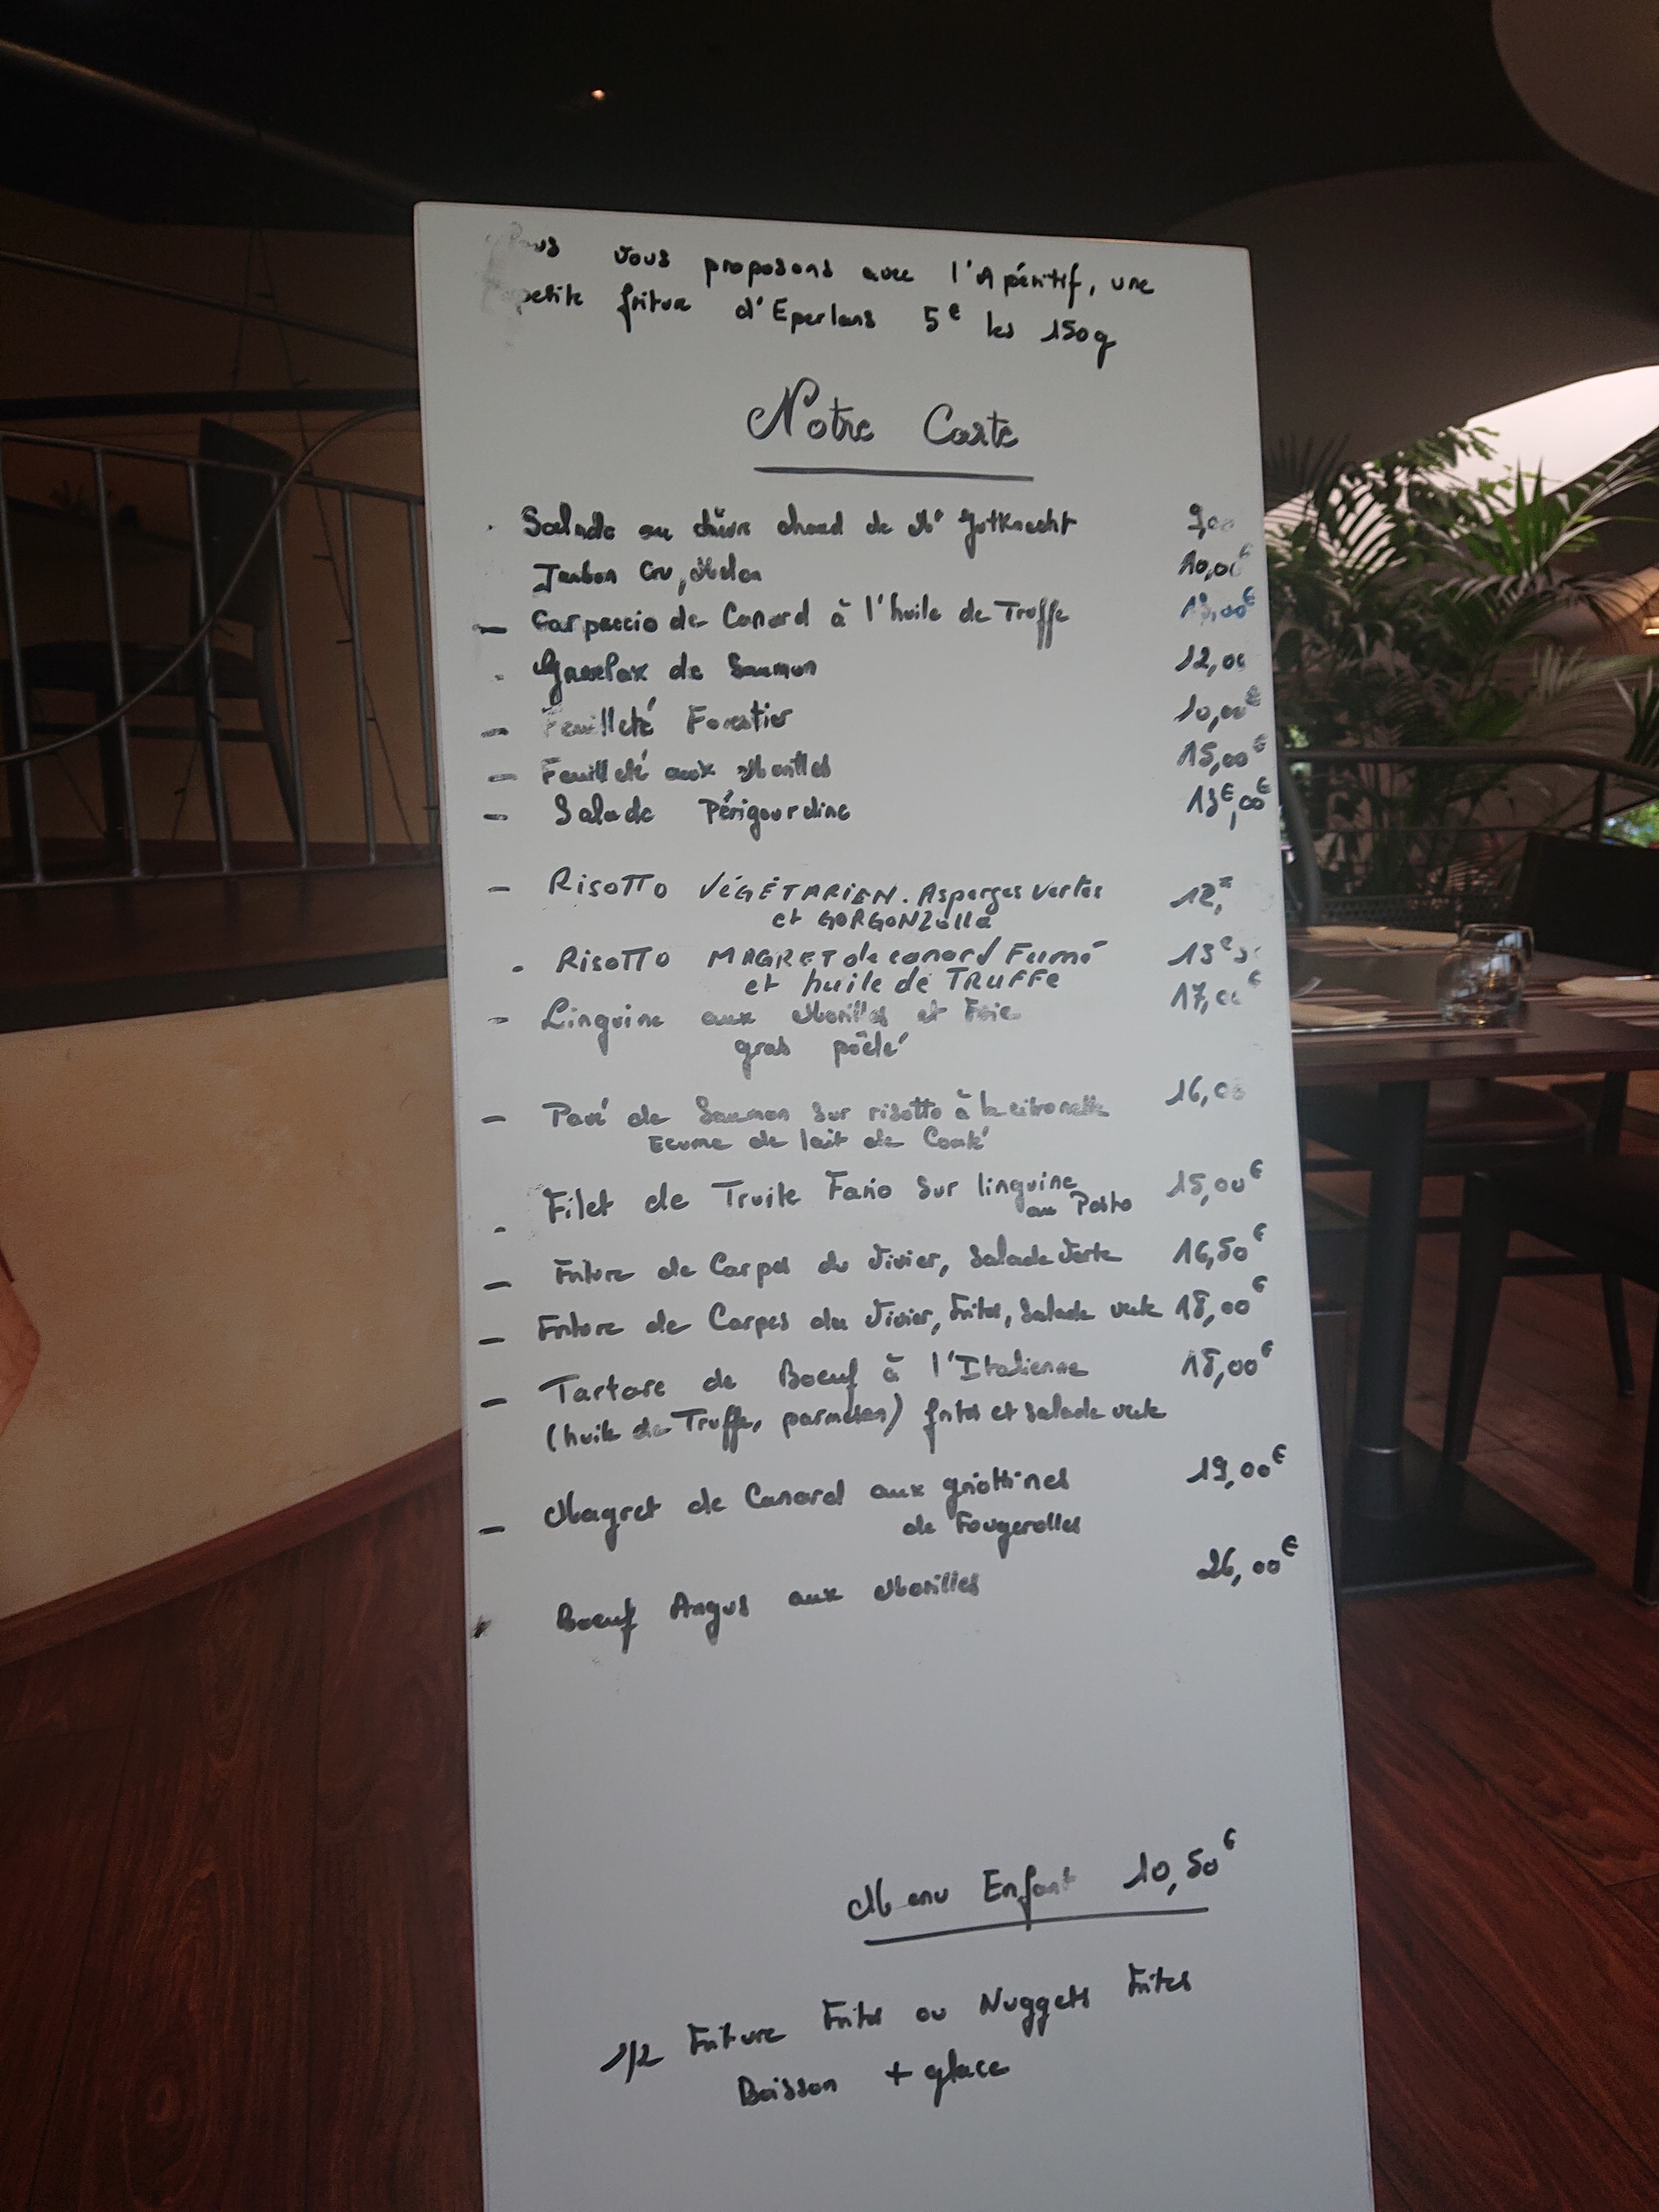 Nous vous proposons avec l'Apéritif, une
petite friture d'Eperlans 5€ les 150g
Notre Carte
Salade au chèvre chaud de Mr Gutknecht 9,00
Jambon Cru, Melon 10,00€
- Carpaccio de Canard à l'huile de Truffe 13,00€
- Gravlax de Saumon 12,00
- Feuilleté Forestier 10,00€
- Feuilleté aux Morilles 15,00€
- Salade Périgourdine 13€,00€
- RISOTTO VÉGÉTARIEN. Asperges vertes 12,
et GORGONZOlla
- RISOTTO MAGRET de canard Fumé 13€
et huile de TRUFFE
- Linguine aux Morilles et Foie 17,00€
gras poêlé
- Pavé de Saumon sur risotto à la citronelle 16,00
Ecume de lait de Comté
- Filet de Truite Fario sur linguine 15,00€
au Pesto
- Friture de Carpes du Vivier, Salade Verte 16,50€
- Friture de Carpes du Vivier, Frites, Salade verte 18,00€
- Tartare de Boeuf à l'Italienne 18,00€
(huile de Truffe, parmesan) frites et salade verte
- Magret de Canard aux griottines 19,00€
de Fougerolles
Boeuf Angus aux Morilles 26,00€
Menu Enfant 10,50€
1/2 Friture Frites ou Nuggets Frites
Boisson + glace